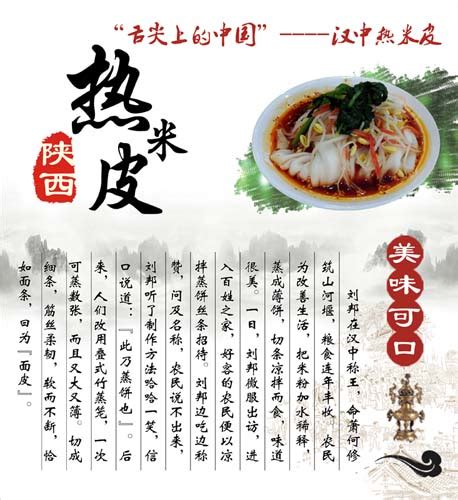 “舌尖上的中国”----汉中热米皮
热米皮
陕西
美味可口
刘邦在汉中称王，命萧何修
筑山河堰，粮食连年丰收。农民
为改善生活，把米粉加水稀释，
蒸成薄饼，切条凉拌而食，味道
很美。一日，刘邦微服出访，进
入百姓之家，好客的农民便以凉
拌蒸饼丝条招待。刘邦边吃边称
赞，问及名称，农民说不出来，
刘邦听了制作方法哈哈一笑，信
口说道：『此乃蒸饼也』。后
来，人们改用叠式竹蒸笼，一次
可蒸数张，而且又大又薄。切成
细条，筋丝柔韧，软而不断，恰
如面条，曰为『面皮』。